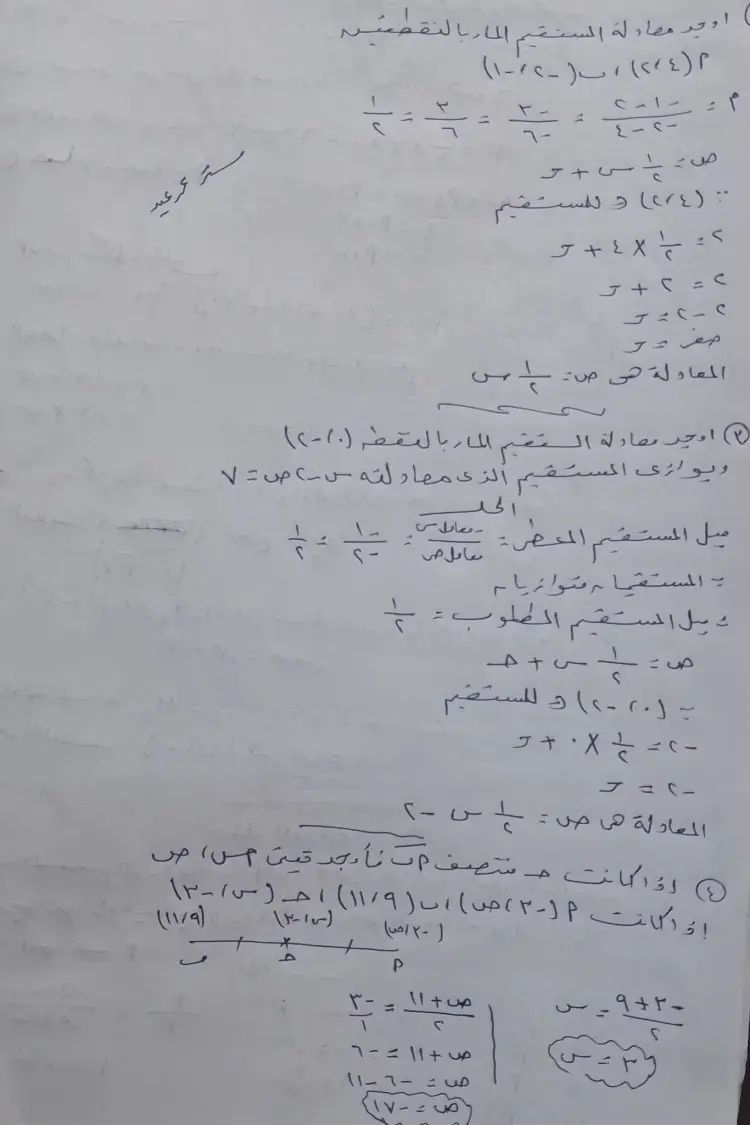 اوجد معادلة المستقيم المار بالنقطتين
م (٤،٢) ، ب (-٢،-١)
م = -١-٢ / -٢-٤ = -٣ / -٦ = ٣ / ٦ = ١ / ٢
ص = ١/٢ س + حـ
∵ (٤،٢) ∈ للمستقيم
٢ = ١/٢ × ٤ + حـ
٢ = ٢ + حـ
٢-٢ = حـ
صفر = حـ
المعادلة هى ص = ١/٢ س
③ اوجد معادلة المستقيم المار بالنقطه (٠،-٢)
ويوازى المستقيم الذى معادلته س-٢ص=٧
الحل
ميل المستقيم المعطى = -معامل س / معامل ص = -١ / -٢ = ١ / ٢
∵ المستقيمان متوازيان
∴ ميل المستقيم المطلوب = ١/٢
ص = ١/٢ س + حـ
∵ (٠،-٢) ∈ للمستقيم
-٢ = ١/٢ × ٠ + حـ
-٢ = حـ
المعادلة هى ص = ١/٢ س - ٢
④ اذا كانت حـ منتصف م ب فأوجد قيمتى س، ص
اذا كانت م (-٣،ص) ، ب (٩،١١) ، حـ (س،-٣)
(٩،١١) (س،-٣) (-٣،ص)
ب حـ م
-٣+٩ / ٢ = س
٣ = س
ص+١١ / ٢ = -٣ / ١
ص+١١ = -٦
ص = -٦-١١
ص = -١٧